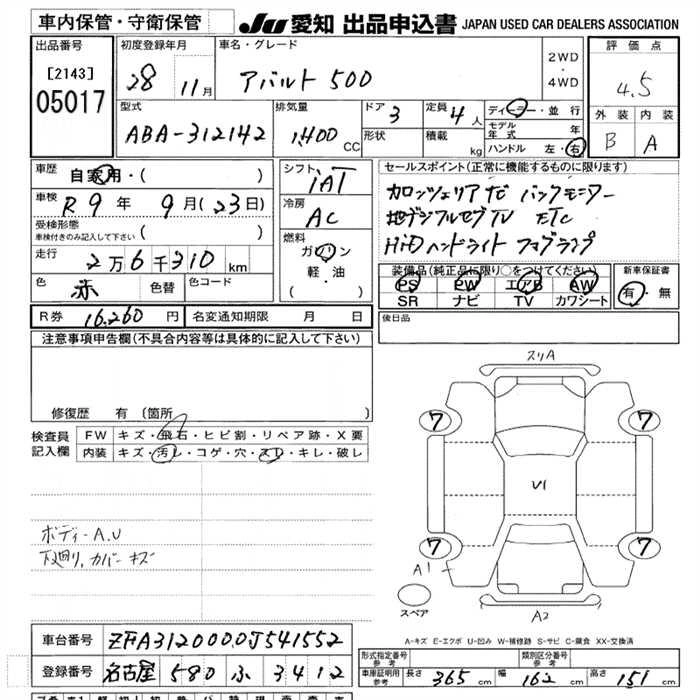 車内保管・守衛保管
JU 愛知 出品申込書 JAPAN USED CAR DEALERS ASSOCIATION
出品番号
[2143]
05017
初度登録年月
28 11月
車名・グレード
アバルト 500
2WD
・
4WD
評価点
4.5
外装 内装
B A
型式
ABA-312142
排気量
1,400 CC
ドア 3
形状
定員 4人
積載 kg
ディーラー・並行
モデル年式 年
ハンドル 左・右
車歴
自家用・( )
車検
R9年 9月(23日)
受検形態
車検付きのみ記入して下さい ( )
走行
2万6千310km
色
赤
色替
色コード
シフト
iAT
冷房
AC
燃料
ガソリン
軽・油
( ・ )
セールスポイント(正常に機能するものに限ります)
カロッツェリアナビ バックモニター
地デジフルセグTV ETC
HiDヘッドライト フォグランプ
装備品(純正品に限り○をつけてください)
PS PW エアB AW
SR ナビ TV カワシート
新車保証書
有・無
R券 16,260 円
名変通知期限 月 日
後日品
注意事項申告欄(不具合内容等は具体的に記入して下さい)
修復歴 有 (箇所 )
検査員記入欄
FW キズ・飛石・ヒビ割・リペア跡・X要
内装 キズ・汚レ・コゲ・穴・スレ・キレ・破レ
ボディーA.U
下廻り.カバーキズ
スリA
7 7
U1
7 7
A1
スペア
A2
A-キズ E-エクボ U-凹み W-補修跡 S-サビ C-腐食 XX-交換済
車台番号 ZFA3120000J541552
登録番号 名古屋 580 ふ 3412
形式指定番号
参考
類別区分番号
参考
車庫証明用
参考
長さ 365cm 幅 162cm 高さ 151cm